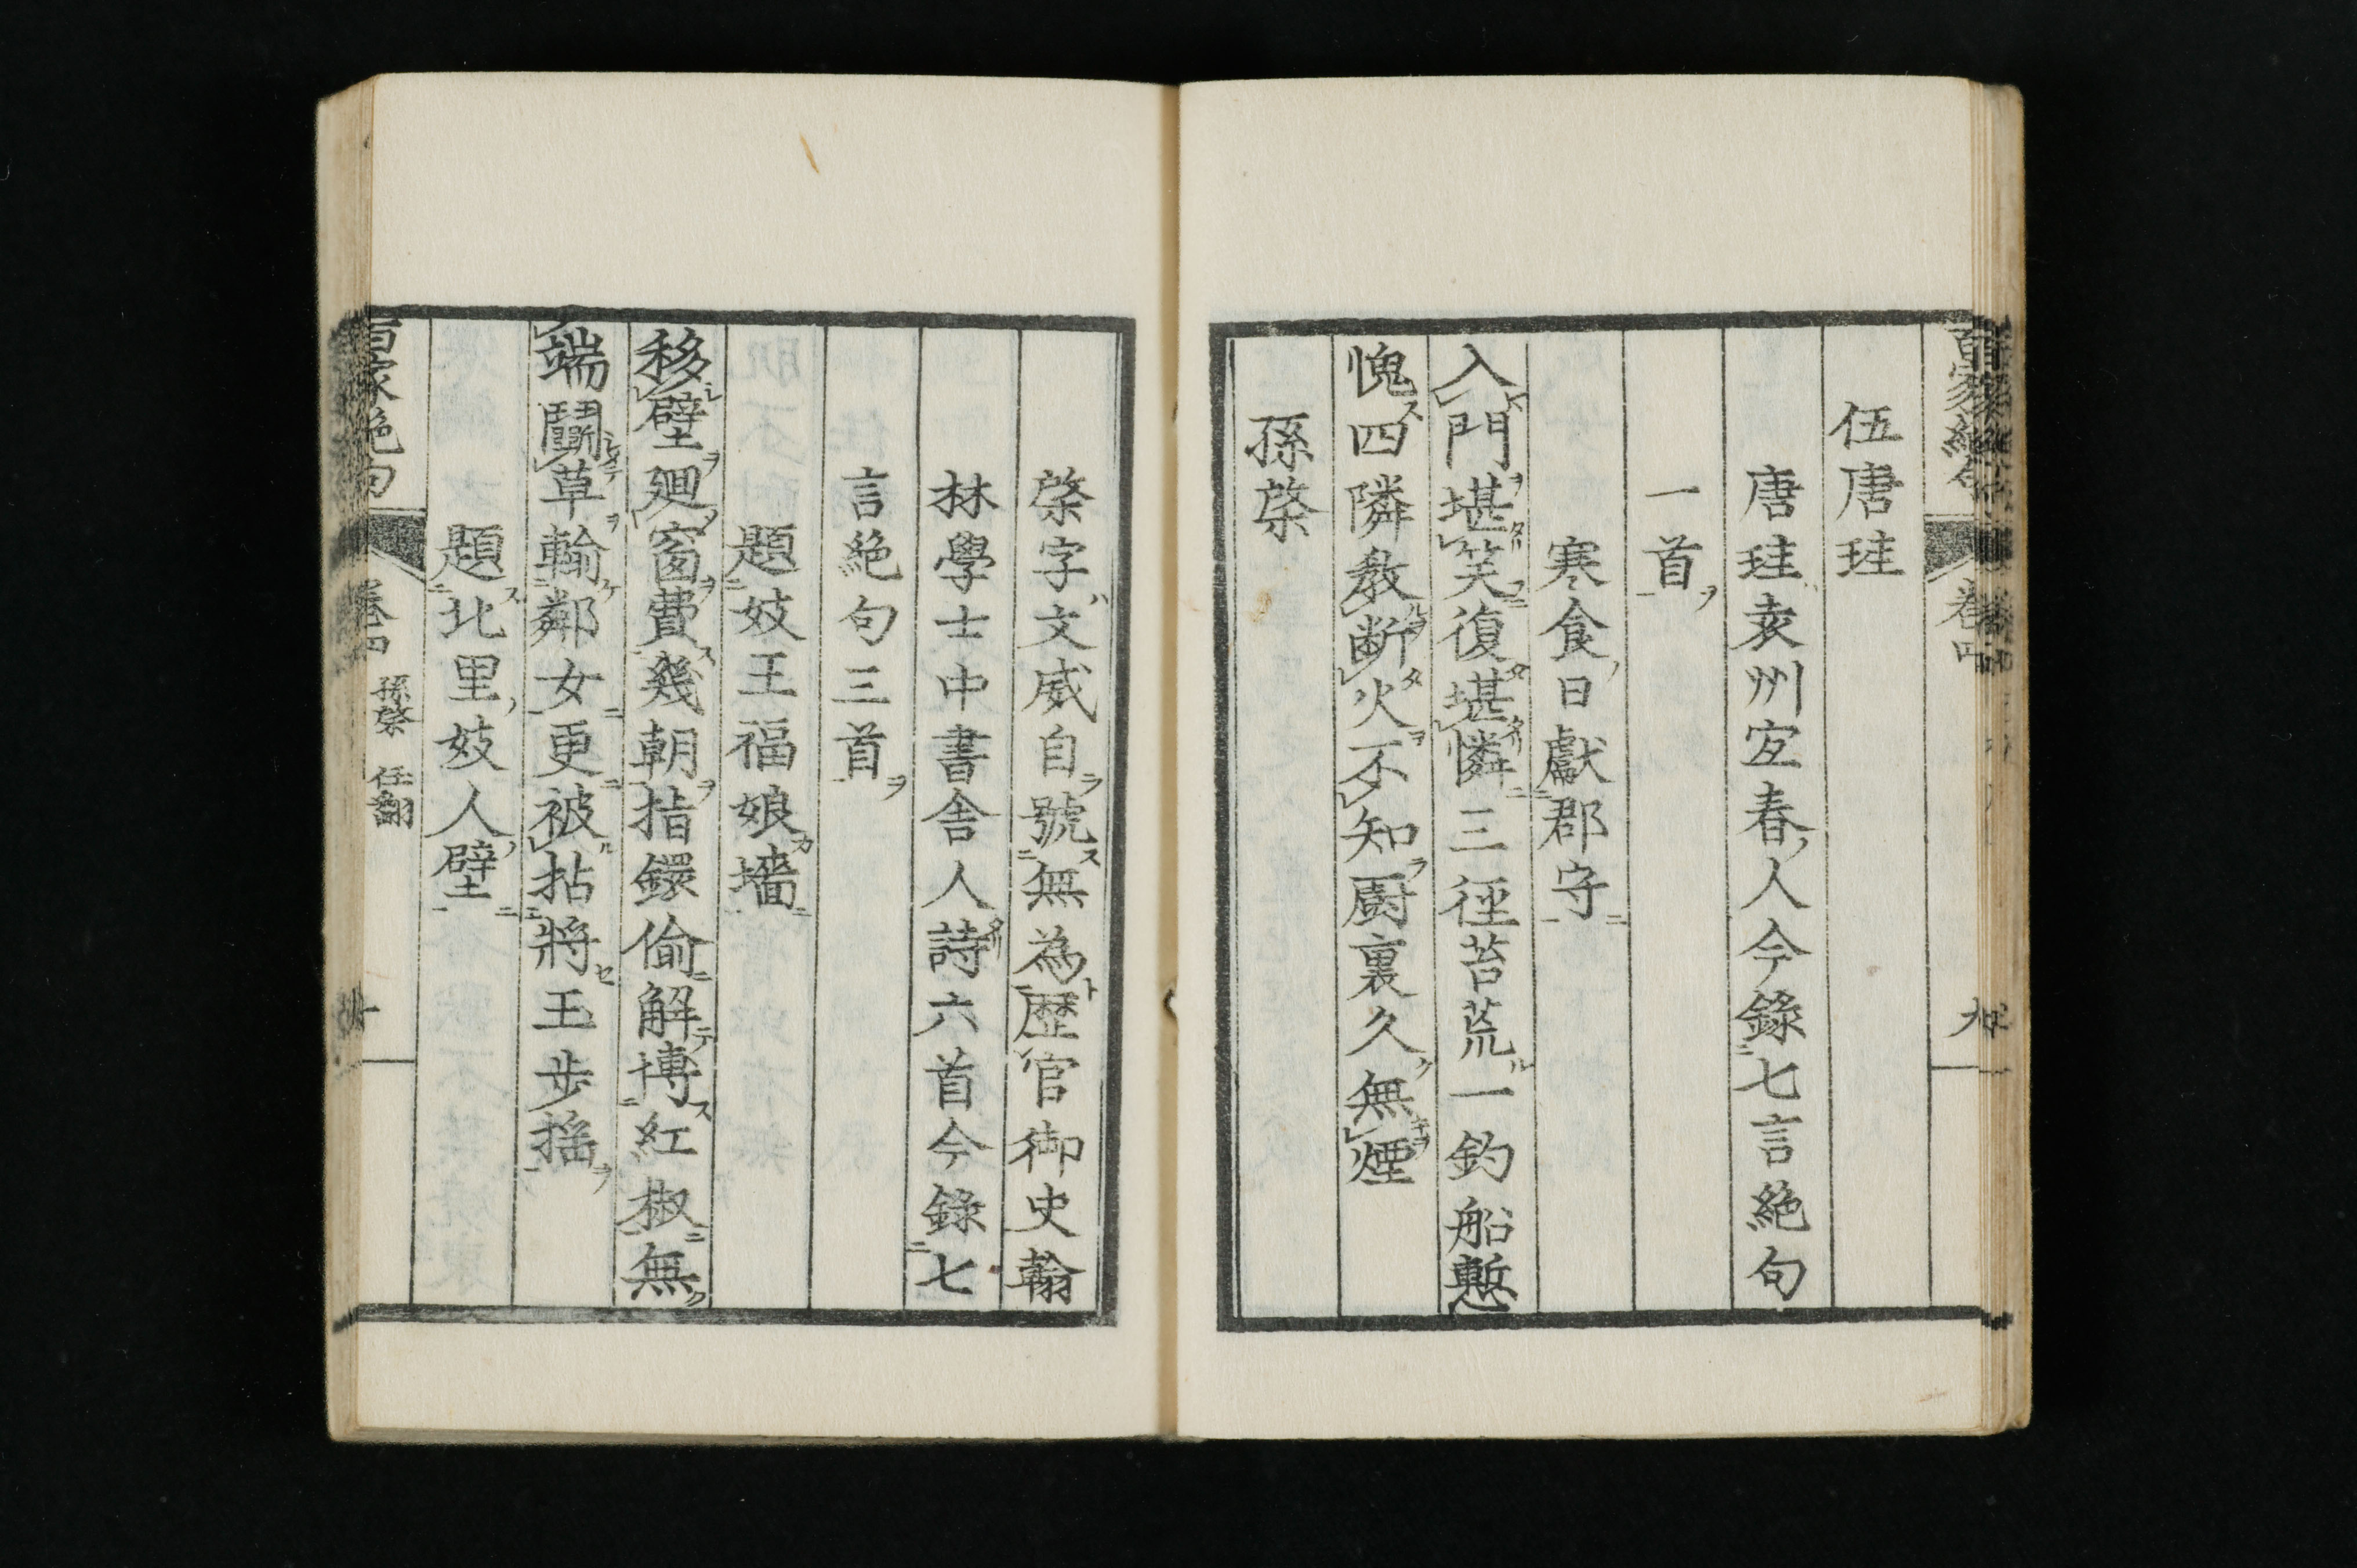 伍唐珪
唐珪袁州宜春人今錄七言絶句
一首
寒食日獻郡守
入門堪笑復堪憐三徑苔荒一釣船慙
愧四隣敎断火不知厨裏久無煙
孫棨
棨字文威自號無為歴官御史翰
林學士中書舎人詩六首今錄七
言絶句三首
題妓王福娘墻
移壁廻窗費幾朝指鐶偷解博紅椒無
端鬬草輸鄰女更被拈將王步搖
題北里妓人壁
百家絶句 卷四 孫棨 任翻